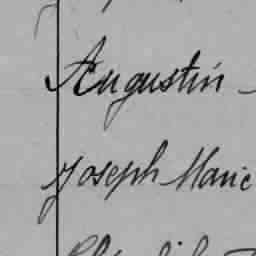 Augustin -
Joseph Marie